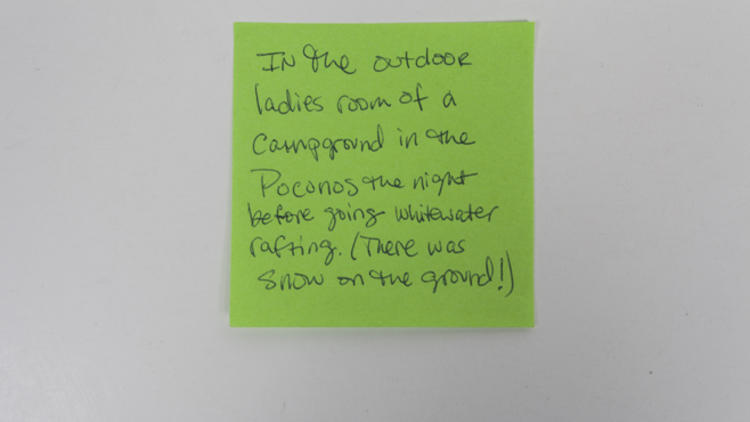 In the outdoor
ladies room of a
Campground in the
Poconos the night
before going whitewater
rafting. (There was
snow on the ground!)